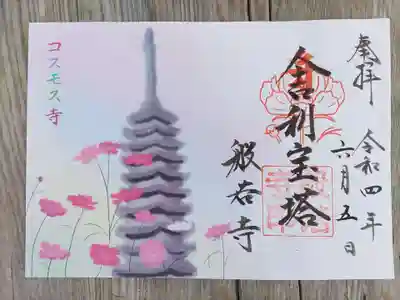 奉拝
令和四年
六月五日
舎利宝塔
般若寺
コスモス寺